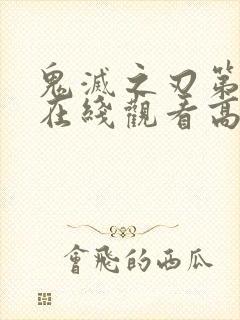 鬼滅之刃第
在綫觀看高
會飛的西瓜